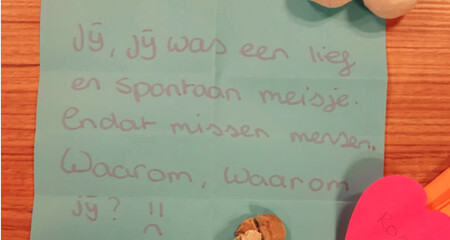 jÿ, jÿ was een lief
en spontaan meisje.
Endat missen mensen.
Waarom, waarom
jÿ? :(